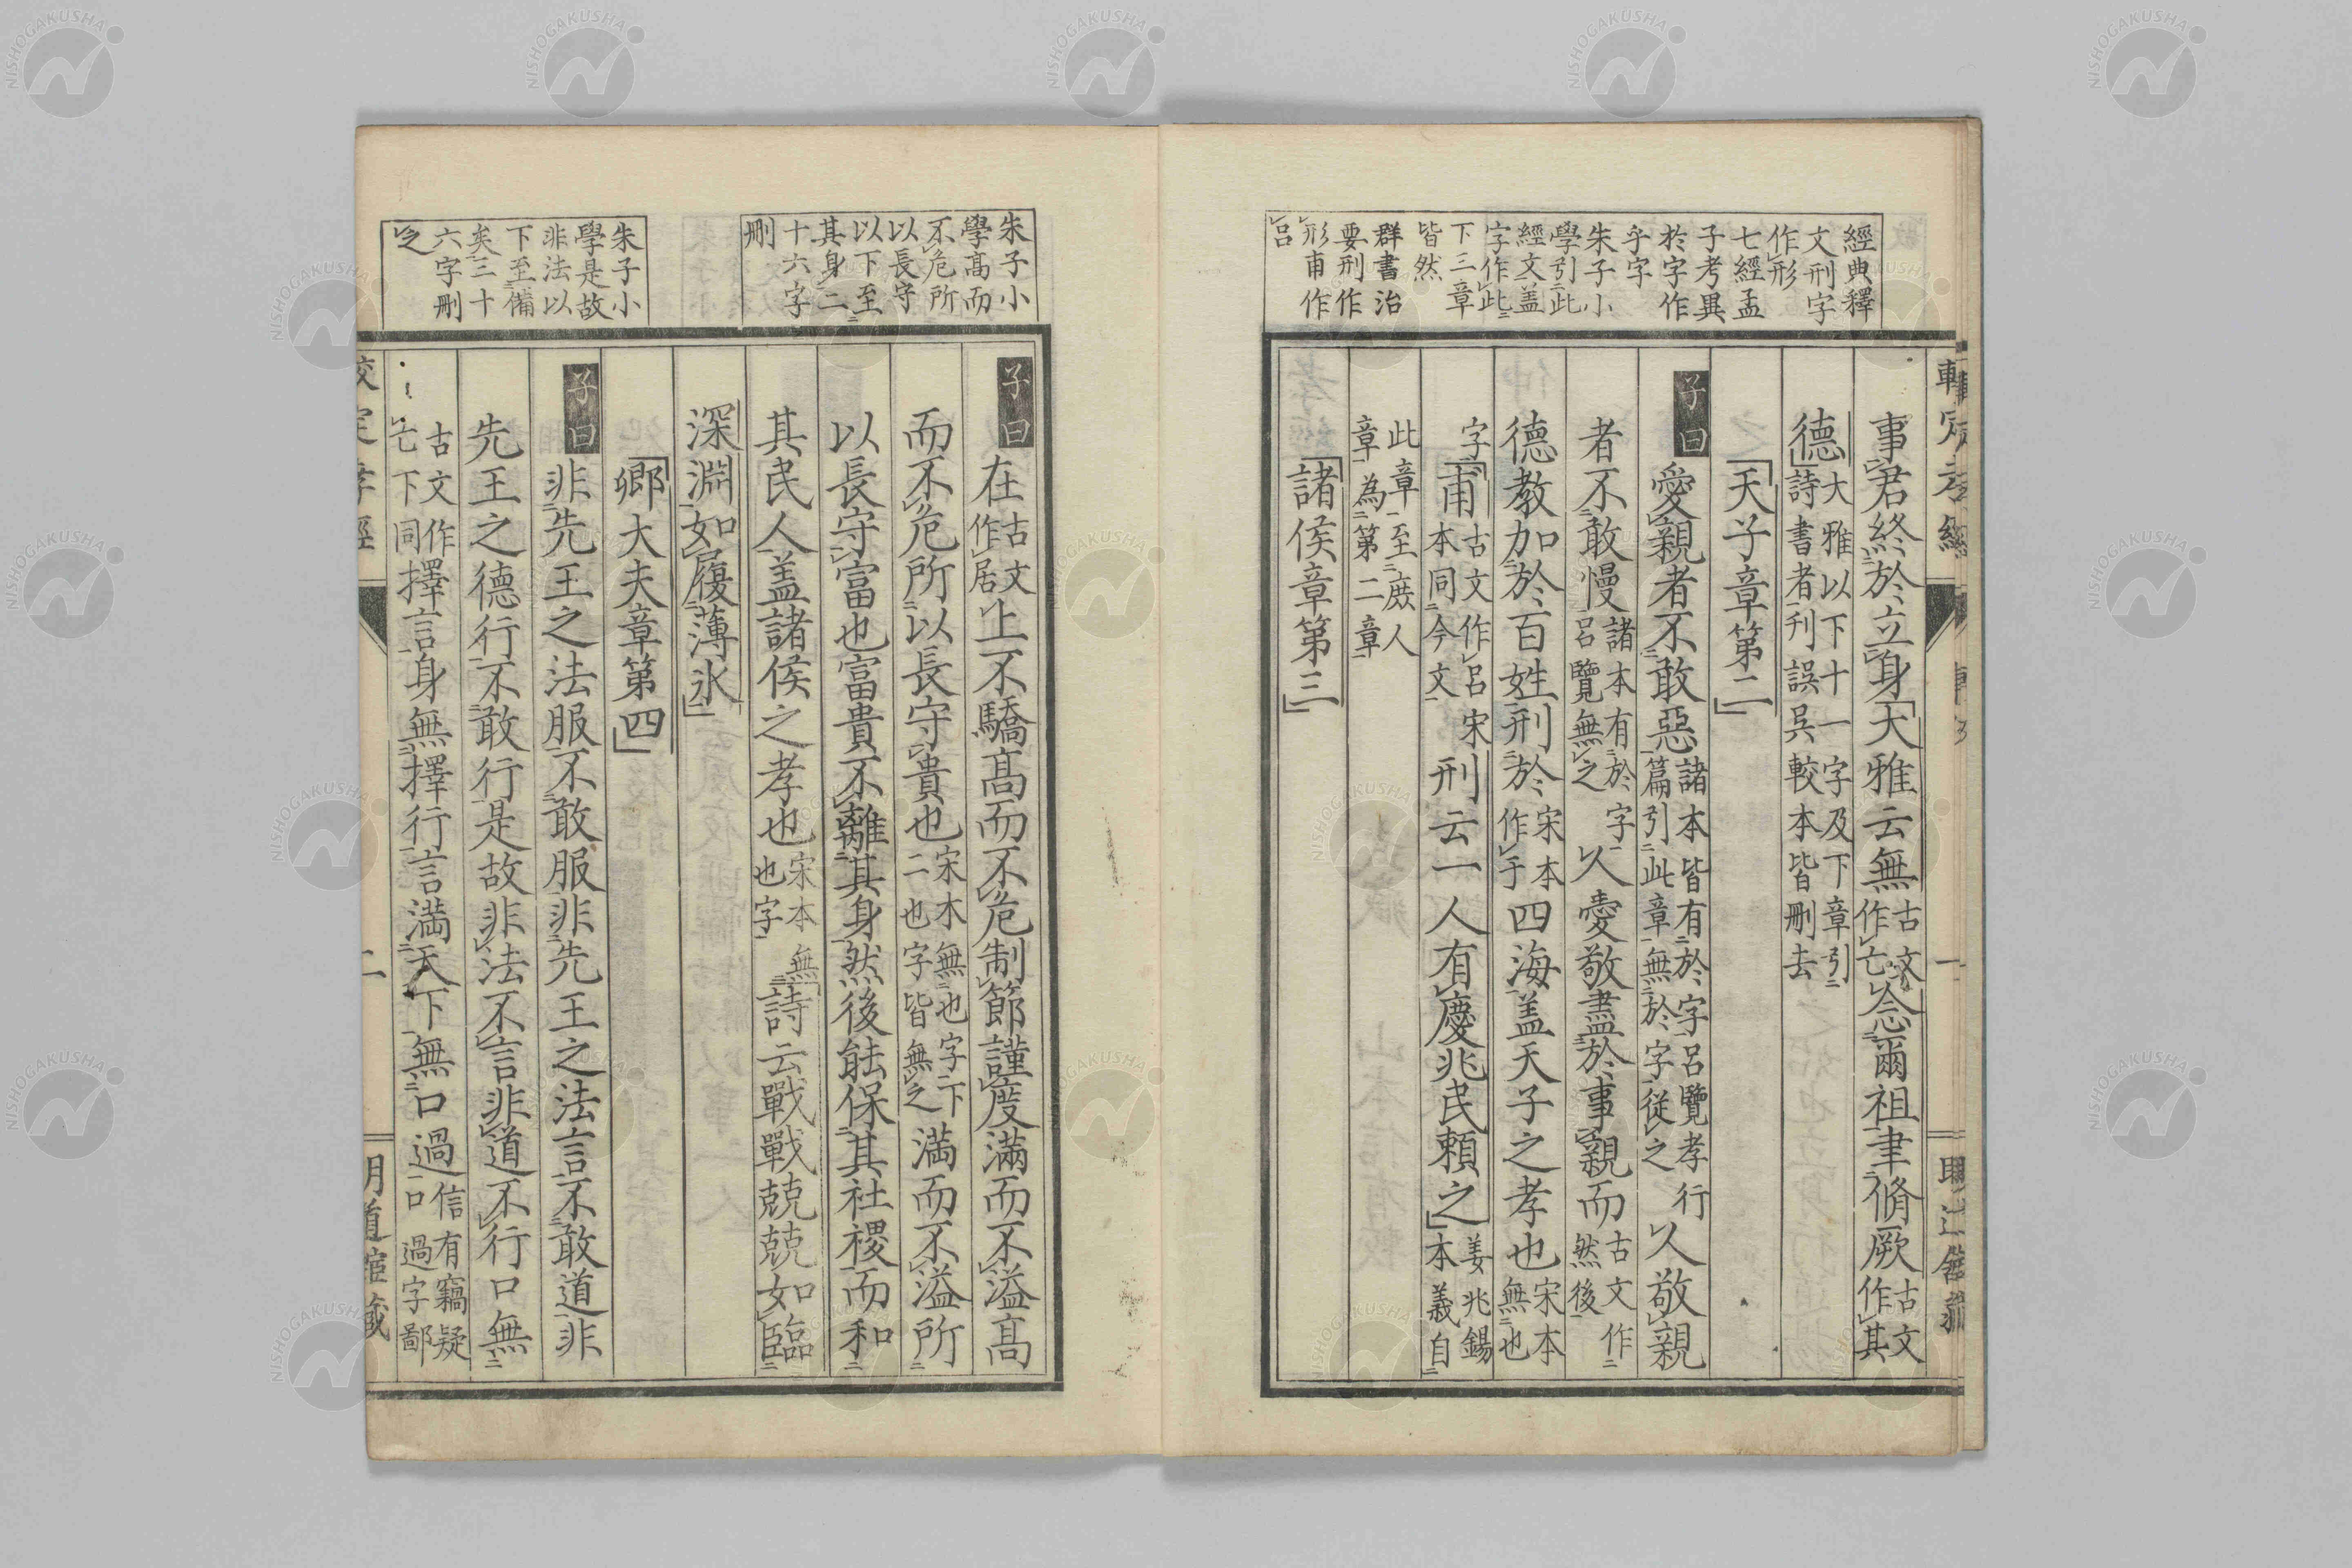 經典釋
文刑字
作形
七經孟
子考異
於字作
乎字
朱子小
學引此
經文盖
字作此
下三章
皆然
群書治
要刑作
形甫作
呂
事君終於立身大雅云無古文作亡念爾祖聿脩厥古文作其
德大雅以下十一字及下章引詩書者刊誤吳較本皆刪去
天子章第二
子曰愛親者不敢惡諸本皆有於字呂覽孝行篇引此章無於字從之以敬親
者不敢慢諸本有於字呂覽無之以愛敬盡於事親而古文作然後
德教加於百姓刑於宋本作于四海盖天子之孝也宋本無也
字甫古文作呂宋本同今文刑云一人有慶兆民賴之姜兆錫本義自
此章至庶人章為第二章
諸侯章第三
朱子小
學高而
不危所
以長守
以下至
其身二
十六字
刪
子曰在古文作居上不驕高而不危制節謹度滿而不溢高
而不危所以長守貴也宋本無也字下二也字皆無之滿而不溢所
以長守富也富貴不離其身然後能保其社稷而和
其民人盖諸侯之孝也宋本無也字詩云戰戰兢兢如臨
深淵如履薄氷
卿大夫章第四
朱子小
學是故
非法以
下至備
矣三十
六字刪
之
子曰非先王之法服不敢服非先王之法言不敢道非
先王之德行不敢行是故非法不言非道不行口無
古文作亡下同擇言身無擇行言滿天下無口過信有竊疑口過字鄙
二
明道館藏
NISHOGAKUSHA